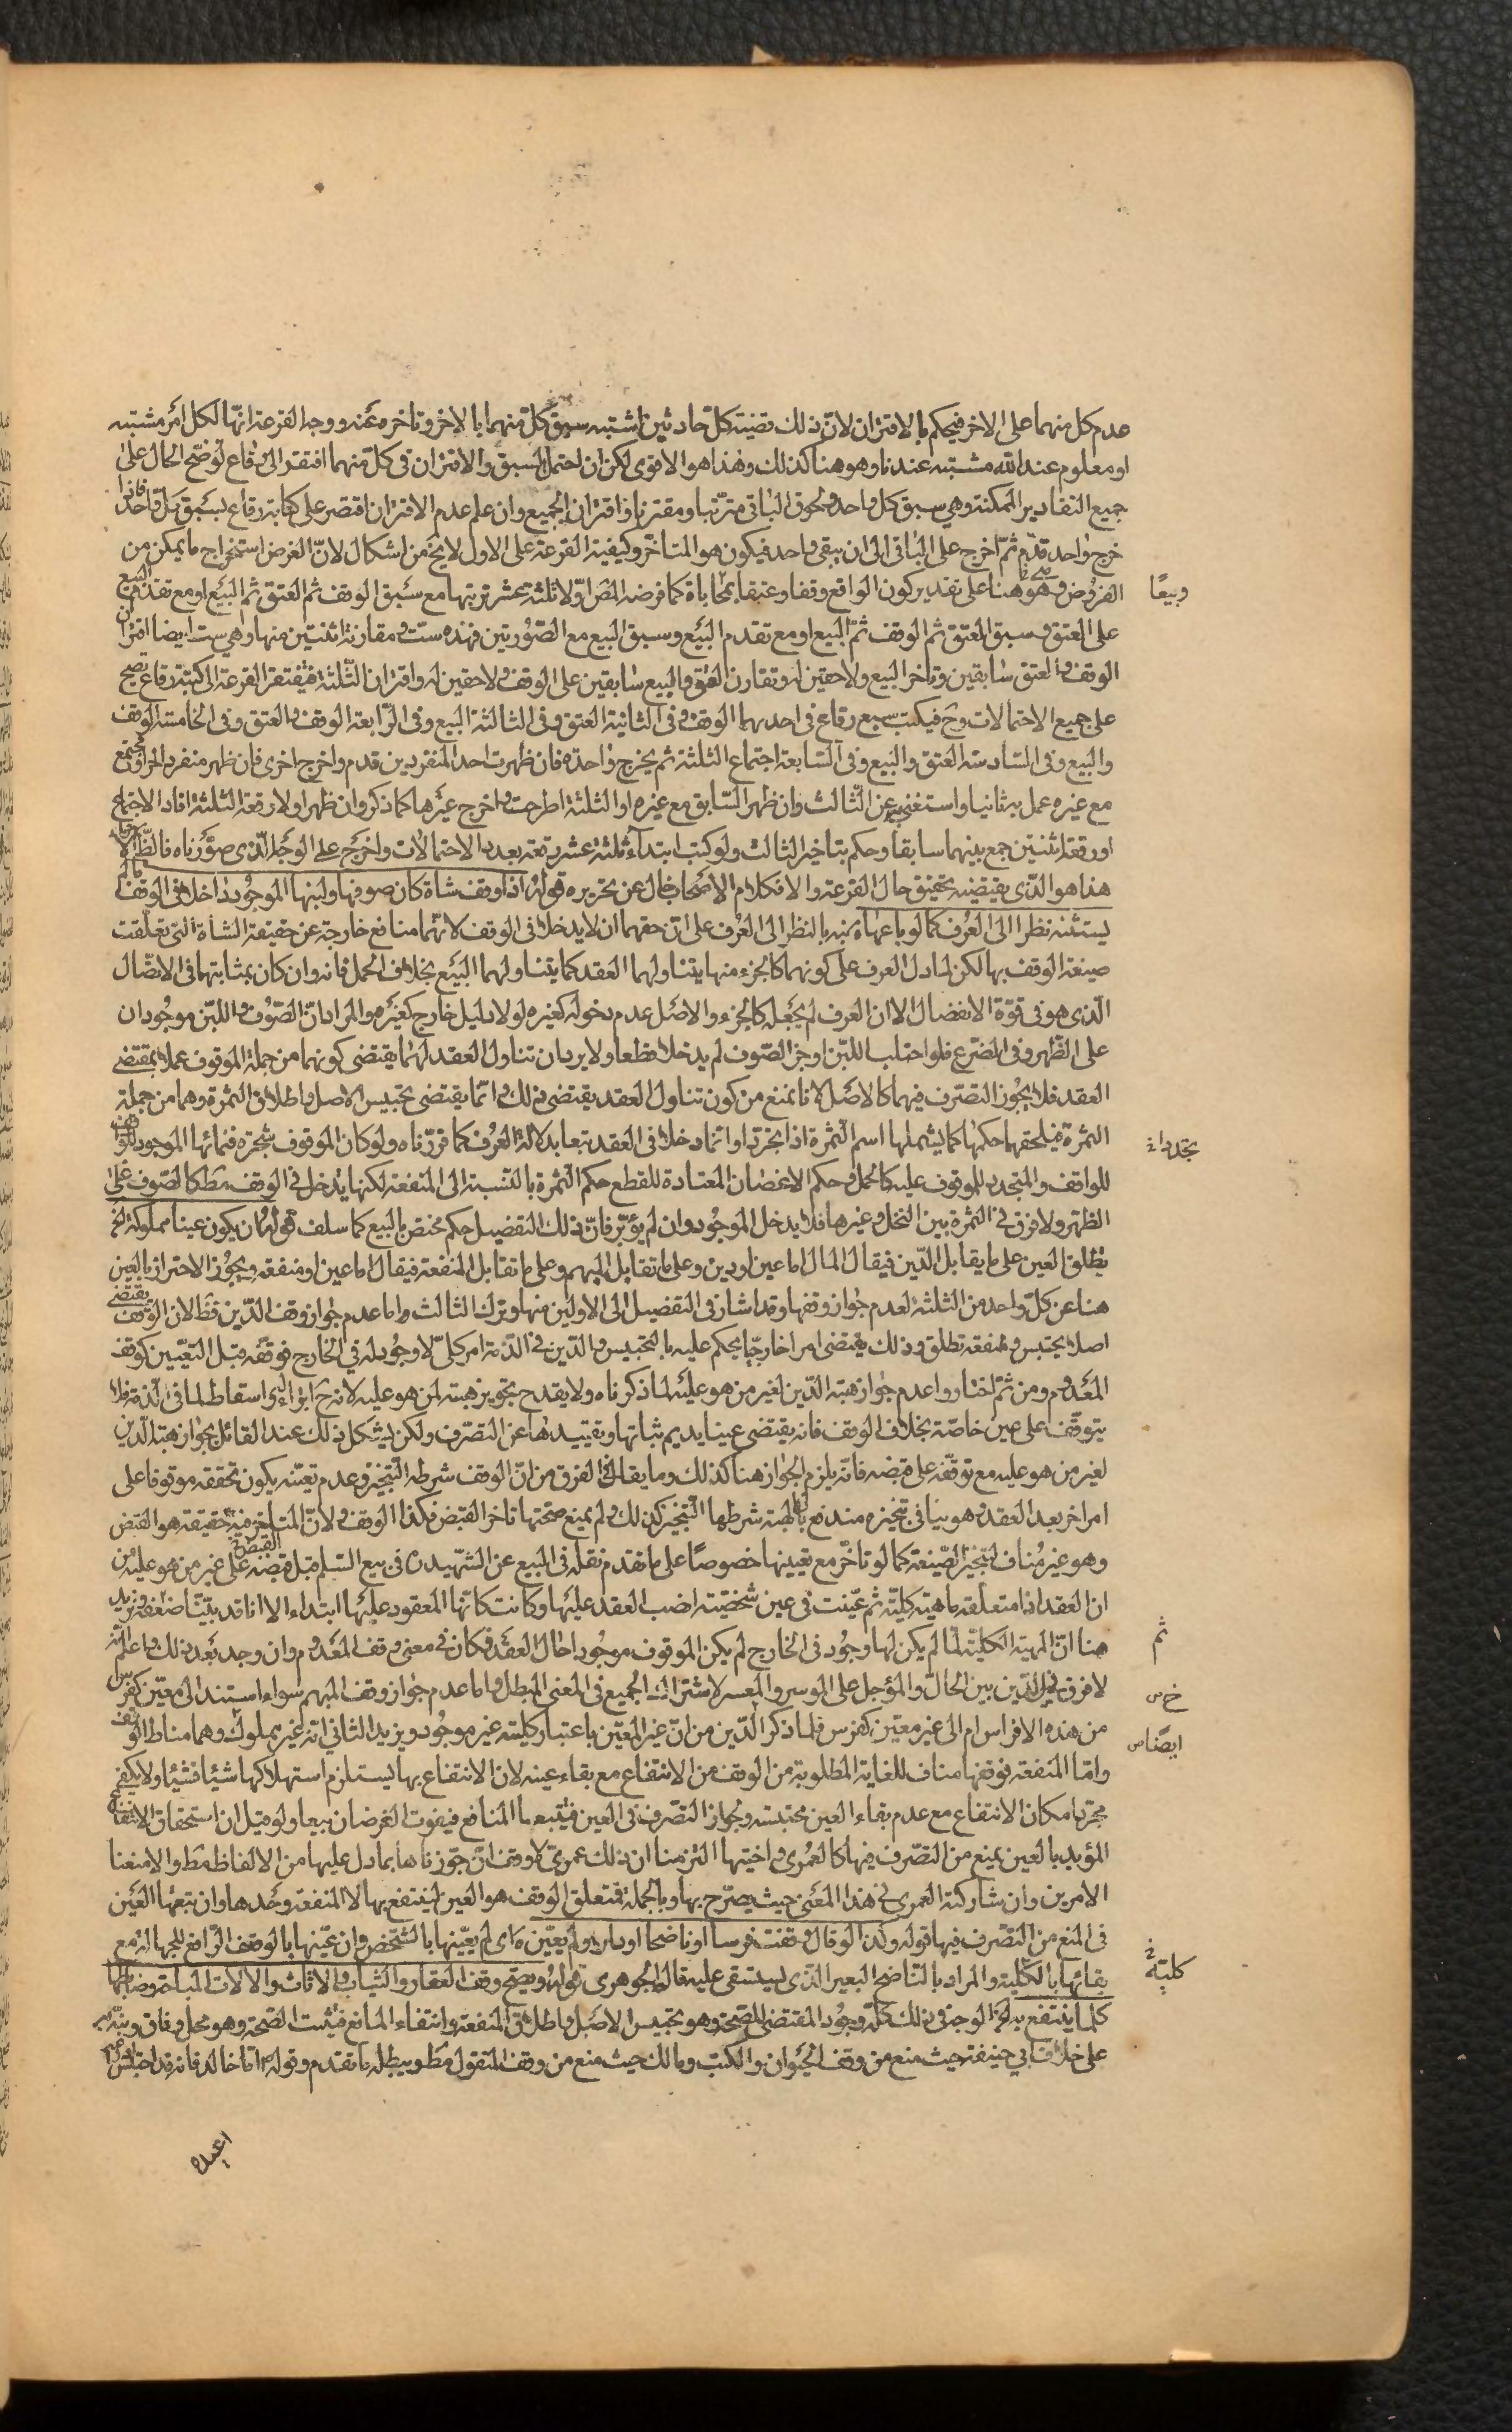 عدم كل منهما على الاخر فيحكم بالاقتران لان ذلك قضية كل حادثين اشتبه سبق كل منهما بالاخر وتاخره عنه ووجه القرعة انها لكل امر مشتبه
او معلوم عند الله مشتبه عندنا وهو هنا كذلك وهذا هو الاقوى لكن ان احتمل السبق والاقتران فى كل منهما افتقر الى رقاع توضح الحال على
جميع التقادير الممكنة وهى سبق كل واحد ولحوق الباقى مترتبا ومقترنا واقتران الجميع وان علم عدم الاقتران اقتصر على كتابة رقاع لسبق كل واحد فاذا
خرج واحد قدم ثم اخرج على الباقى الى ان يبقى واحد فيكون هو المتاخر وكيفية القرعة على الاول لا يخ من اشكال لان الغرض استخراج ما يمكن من
الفروض وهى هنا على تقدير كون الواقع وقفا وعتقا بمحاباة كما فرضه المص اولا ثلثة عشر ترتبها مع سبق الوقف ثم العتق ثم البيع او مع تقدم البيع
وبيعًا
على العتق وسبق العتق ثم الوقف ثم البيع او مع تقدم البيع وسبق البيع مع الصورتين فهذه ست ومقارنة اثنتين منها وهى ست ايضا اقتران
الوقف والعتق سابقين وتاخر البيع ولاحقين له وتقارن العتق والبيع سابقين على الوقف ولاحقين له واقتران الثلثة فيفتقر القرعة الى كتبة رقاع تصح
على جميع الاحتمالات وح فيكتب سبع رقاع فى احديهما الوقف وفى الثانية العتق وفى الثالثة البيع وفى الرابعة الوقف والعتق وفى الخامسة الوقف
والبيع وفى السادسة العتق والبيع وفى السابعة اجتماع الثلثة ثم يخرج واحدة فان ظهرت احد المنفردين قدم واخرج اخرى فان ظهر منفرد اخر او مجتمع
مع غيره عمل به ثانيا واستغنى عن الثالث وان ظهر السابق مع غيره او الثلثة اطرحت واخرج غيرها كما ذكر وان ظهر اولا رقعة الثلثة افاد الاجتماع
او رقعة اثنتين جمع بينهما سابقا وحكم بتاخير الثالث ولو كتب ابتداء ثلثة عشر رقعة بعدد الاحتمالات واخرج على الوجه الذى صورناه فالظ
هذا هو الذى يقتضيه تحقيق حال القرعة والا فكلام الاصحاب خال عن تحريره قوله اذا وقف شاة كان صوفها ولبنها الموجود داخلا فى الوقف ما لم
يستثنه نظرا الى العرف كما لو باعها نبه بالنظر الى العرف على ان حقهما ان لا يدخلا فى الوقف لانهما منافع خارجة عن حقيقة الشاة التى تعلقت
صيغة الوقف بها لكن لما دل العرف على كونهما كالجزء منها يتناولهما العقد كما يتناولهما البيع بخلاف الحمل فانه وان كان بمثابتهما فى الاتصال
الذى هو فى قوة الانفصال الا ان العرف لم يجعله كالجزء والاصل عدم دخوله كغيره لولا دليل خارج كغيره والمراد ان الصوف واللبن موجودان
على الظهر وفى الضرع فلو احتلب اللبن او جز الصوف لم يدخلا قطعا ولا يرد ان تناول العقد لهما يقتضى كونهما من جملة الموقوف عملا بمقتضى
العقد فلا يجوز التصرف فيهما كالاصل لانا نمنع من كون تناول العقد يقتضى ذلك وانما يقتضى تحبيس الاصل واطلاق الثمرة وهما من جملة
الثمرة فيلحقهما حكمها كما يشملها اسم الثمرة اذا تجردا وانما دخلا فى العقد تبعا بدلالة العرف كما قررناه ولو كان الموقوف شجرة فنمائها الموجود للواقف
تجددا خ
للواقف والمتجدد للموقوف عليه كالحمل وحكم الاغصان المعتادة للقطع حكم الثمرة بالنسبة الى المنفعة لكنها يدخل فى الوقف مط كالصوف على
الظهر ولا فرق فى الثمرة بين النخل وغيرها فلا يدخل الموجود وان لم يؤبر فان ذلك التفصيل حكم مختص بالبيع كما سلف قوله ان يكون عينا مملوكة الخ
يطلق العين على ما يقابل الدين فيقال المال اما عين او دين وعلى ما تقابل المبهم وعلى ما تقابل المنفعة فيقال اما عين او منفعة ويجوز الاحتراز بالعين
هنا عن كل واحد من الثلثة لعدم جواز وقفها وقد اشار فى التفصيل الى الاولين منها وترك الثالث واما عدم جواز وقف الدين فظ لان الوقف يقتضى
اصلا يحتبس ومنفعة تطلق وذلك يقتضى امرا خارجيا يحكم عليه بالتحبيس والدين فى الذمة امر كلى لا وجود له فى الخارج فوقفه قبل التعيين كوقف
المعدوم ومن ثم اختاروا عدم جواز هبة الدين لغير من هو عليه لما ذكرناه ولا يقدح تجويز هبته لمن هو عليه لانه ح ابراء او اسقاط لما فى الذمة فلا
يتوقف على عين خاصة بخلاف الوقف فانه يقتضى عينا يديم ثباتها وتقييدها عن التصرف ولكن يشكل ذلك عند القائل بجواز هبة الدين
لغير من هو عليه مع توقفه على قبضه فانه يلزم الجواز هنا كذلك وما يقال فى الفرق من ان الوقف شرطه التنجيز وعدم تعينه يكون تحققه موقوفا على
امر اخر بعد العقد وهو ينافى تنجيزه مندفع بان الهبة شرطها التنجيز كذلك ولم يمنع صحتها تاخر القبض فكذا الوقف ولان المتاخر فيه حقيقة هو القبض
وهو غير مناف لتنجيز الصيغة كما لو تاخر مع تعيينها خصوصًا على ما تقدم نقله فى البيع عن الشهيد ره فى بيع السلم قبل قبضه على غير من هو عليه من
ان العقد اذا متعلقه ماهية كلية ثم عينت فى عين شخصية انصب العقد عليها وكانت كانها المعقود عليها ابتداء الا انا قد بينا ضعفه ونزيد
هنا ان المهية الكلية لما لم يكن لها وجود فى الخارج لم يكن الموقوف موجودا حال العقد فكان فى معنى وقف المعدوم وان وجد بعد ذلك واعلم انه
ثم
لا فرق فى الدين بين الحال والمؤجل على الموسر والمعسر لاشتراك الجميع فى المعنى المبطل واما عدم جواز وقف المبهم سواء استند الى معين كفرس
خ ص
من هذه الافراس ام الى غير معين كفرس فلما ذكر الدين من ان غير المعين باعتبار كليته غير موجود ويزيد الثانى انه غير مملوك وهما مناط الوقف
ايضًا ص
واما المنفعة فوقفها مناف للغاية المطلوبة من الوقف من الانتفاع مع بقاء عينه لان الانتفاع بها يستلزم استهلاكها شيئا فشيئا ولا يكفى
مجرد امكان الانتفاع مع عدم بقاء العين محتبسة وجواز التصرف فى العين فيتبعها المنافع فيفوت الغرضان تبعا ولو قيل ان استحقاق الانتفاع
المؤبد بالعين يمنع من التصرف فيها كالعمرى واختيها التزمنا ان ذلك عمرى لا وقف ان جوزناها بما دل عليها من الالفاظ مط والا منعنا
الامرين وان شاركته العمرى فى هذا المعنى حيث يصرح بها وبالجملة فمتعلق الوقف هو العين لينتفع بها لا المنفعة وحدها وان تبعها العين
فى المنع من التصرف فيها قوله وكذا لو قال وقفت فرسا او ناضحا او دارا ولم يعين ه اى لم يعينها بالشخص وان عينها بالوصف الرافع للجهالة مع
بقائها بالكلية والمراد بالناضح البعير الذى يستسقى عليه قاله الجوهرى قوله ويصح وقف العقار والثياب والاثاث والالات المباحة وضابطها
كلية خ
كلما ينتفع به الخ الوجه فى ذلك كله وجود المقتضى للصحة وهو تحبيس الاصل واطلاق المنفعة وانتفاء المانع فيثبت الصحة وهو محل وفاق ونبه به
على خلاف ابى حنيفة حيث منع من وقف الحيوان والكتب ومالك حيث منع من وقف المنقول مط ويبطله ما تقدم وقوله ص اما خالد فانه قد احتبس
اعبده